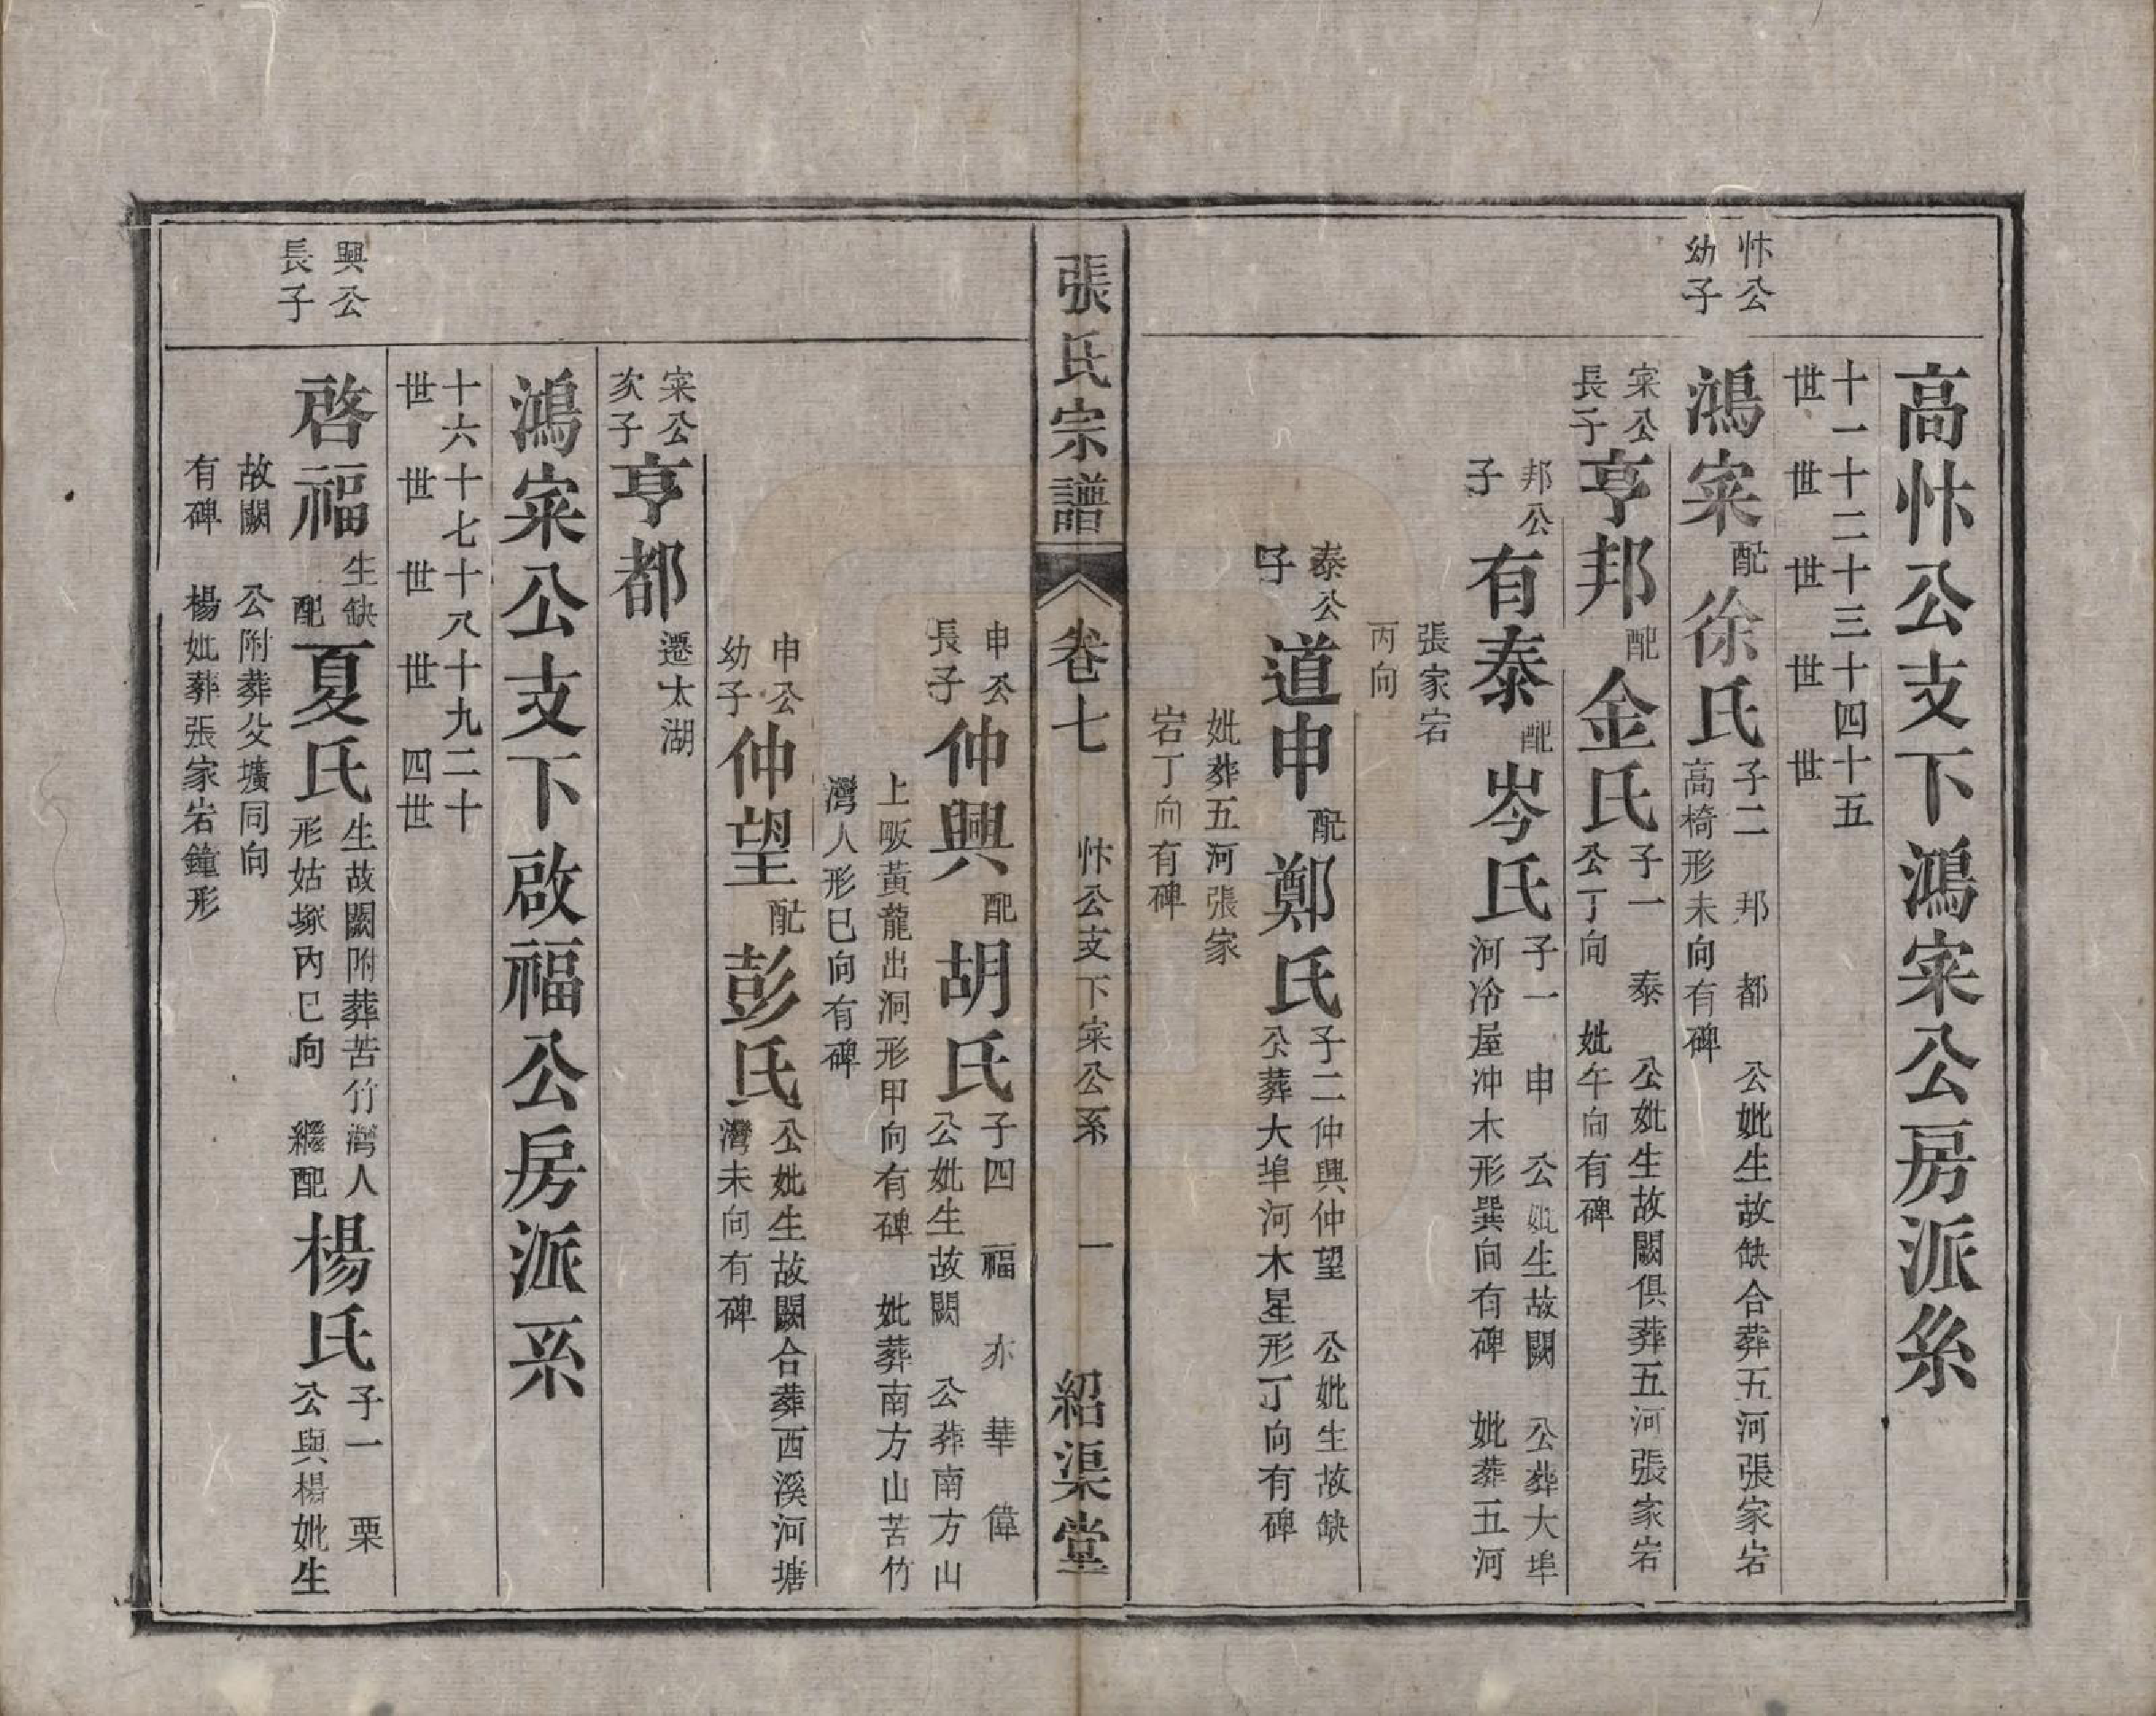 高忭公支下鴻寀公房派糸
十一十二十三十四十五
世 世 世 世 世
忭公
幼子
鴻寀配徐氏
子二 邦 都 公妣生故缺合葬五河張家岩
高椅形未向有碑
寀公
長子
亨邦配金氏
子一 泰 公妣生故闕俱葬五河張家岩
公丁向 妣午向有碑
邦公
子
有泰配岑氏
子一 申 公妣生故闕 公葬大埠
河冷屋冲木形巽向有碑 妣葬五河
張家宕
丙向
泰公
子
道申配鄭氏
子二仲興仲望 公妣生故缺
公葬大埠河木星形丁向有碑
妣葬五河張家
宕丁向有碑
張氏宗譜
卷七 忭公支下寀公系 一 紹渠堂
申公
長子
仲興配胡氏
子四 福 亦 華 偉
公妣生故闕 公葬南方山
上畈黃龍出洞形甲向有碑 妣葬南方山苦竹
灣人形巳向有碑
申公
幼子
仲望配彭氏
公妣生故闕合葬西溪河塘
灣未向有碑
寀公
次子
亨都
遷太湖
鴻寀公支下啟福公房派系
十六十七十八十九二十
世 世 世 世 四世
興公
長子
啓福
生缺
配
夏氏
生故闕附葬苦竹灣人
形姑塚內巳向 繼配
楊氏
子一 栗
公與楊妣生
故闕 公附葬父壙同向
有碑 楊妣葬張家岩鐘形